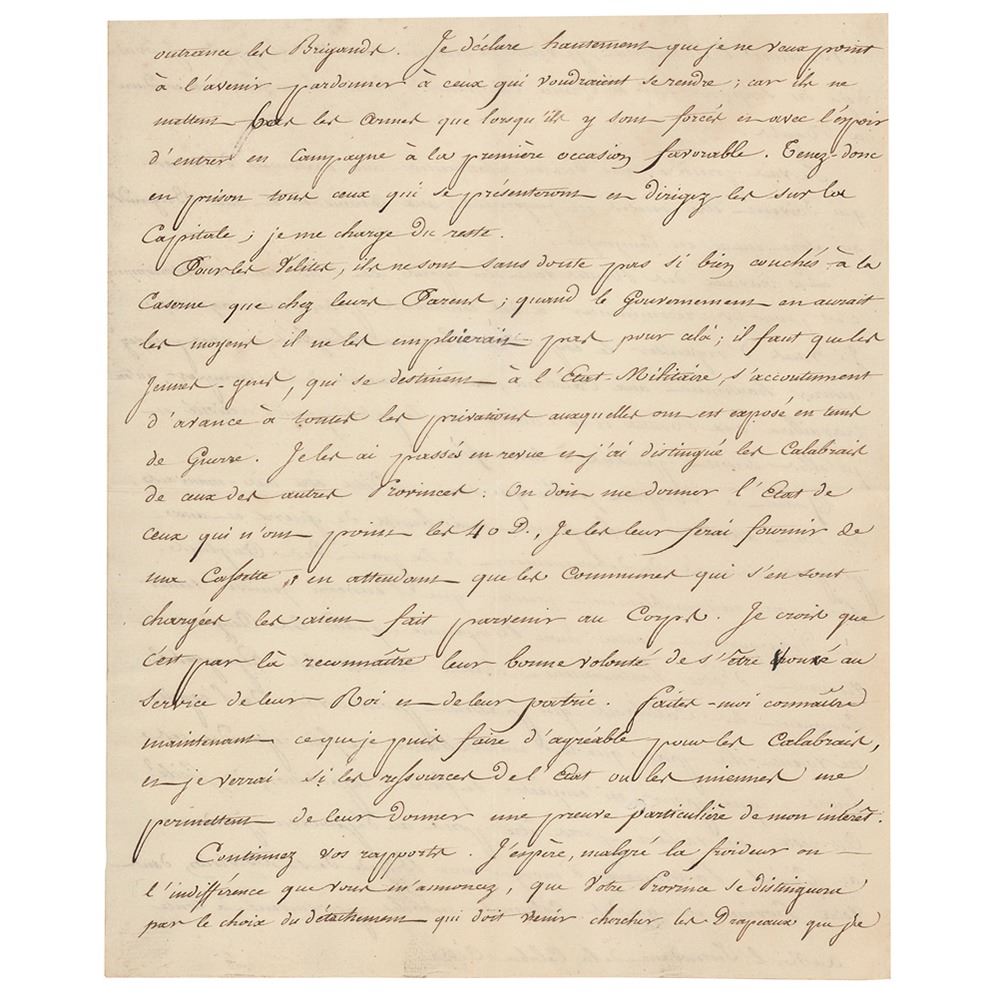 outrance les Brigands. Je déclare hautement que je ne veux point
à l'avenir pardonner à ceux qui voudraient se rendre ; car ils ne
mettent bas les armes que lorsqu'ils y sont forcés et avec l'éspoir
d'entrer en Campagne à la première occasion favorable. Tenez-donc
en prison tous ceux qui se présenteront et dirigez les sur la
Capitale ; je me charge du reste.
Pour les Vélites, ils ne sont sans doute pas si bien couchés à la
Caserne que chez leurs Parens ; quand le Gouvernement en aurait
les moyens il ne les emploierait pas pour célà ; il faut que les
Jeunes-gens, qui se destinent à l'Etat-Militaire, s'accoutument
d'avance à toutes les privations auxquelles on est exposé en tems
de Guerre. Je les ai passés en revue et j'ai distingué les Calabrais
de ceux des autres Provinces. On doit me donner l'Etat de
ceux qui n'ont point les 40 D., Je les leur ferai fournir de
ma Cassette, en attendant que les Communes qui s'en sont
chargées les aient fait parvenir au Corps. Je crois que
c'est par là reconnaître leur bonne volonté de s'être voués au
service de leur Roi et de leur patrie. Faites-moi connaître
maintenant ce que je puis faire d'agréable pour les Calabrais,
et je verrai si les ressources de l'Etat ou les miennes me
permettent de leur donner une preuve particulière de mon intérêt.
Continuez vos rapports. J'espère, malgré la froideur ou
l'indifférence que vous m'annoncez, que Votre Province se distinguera
par le choix du détachement qui doit venir chercher les Drapeaux que je